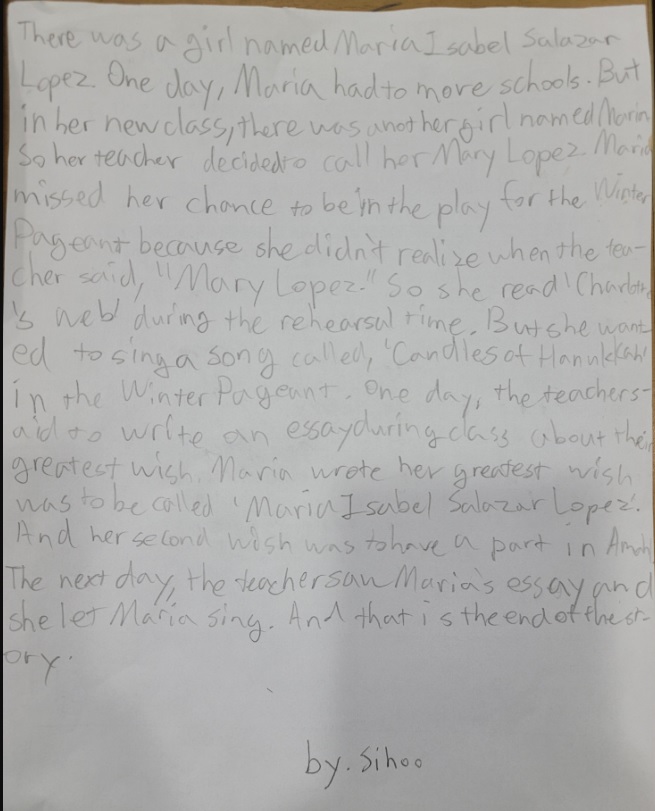 There was a girl named Maria Isabel Salazar
Lopez. One day, Maria had to more schools. But
in her new class, there was another girl named Maria
So her teacher decided to call her Mary Lopez. Maria
missed her chance to be in the play for the Winter
Pageant because she didn't realize when the tea-
cher said, "Mary Lopez." So she read 'Charlotte
's web' during the rehearsal time. But she want
ed to sing a song called, 'Candles of Hanukkah'
in the Winter Pageant. One day, the teacher s-
aid to write an essay during class about their
greatest wish. Maria wrote her greatest wish
was to be called 'Maria Isabel Salazar Lopez'.
And her second wish was to have a part in
The next day, the teacher saw Maria's essay and
she let Maria sing. And that is the end of the st-
ory.
by. Sihoo